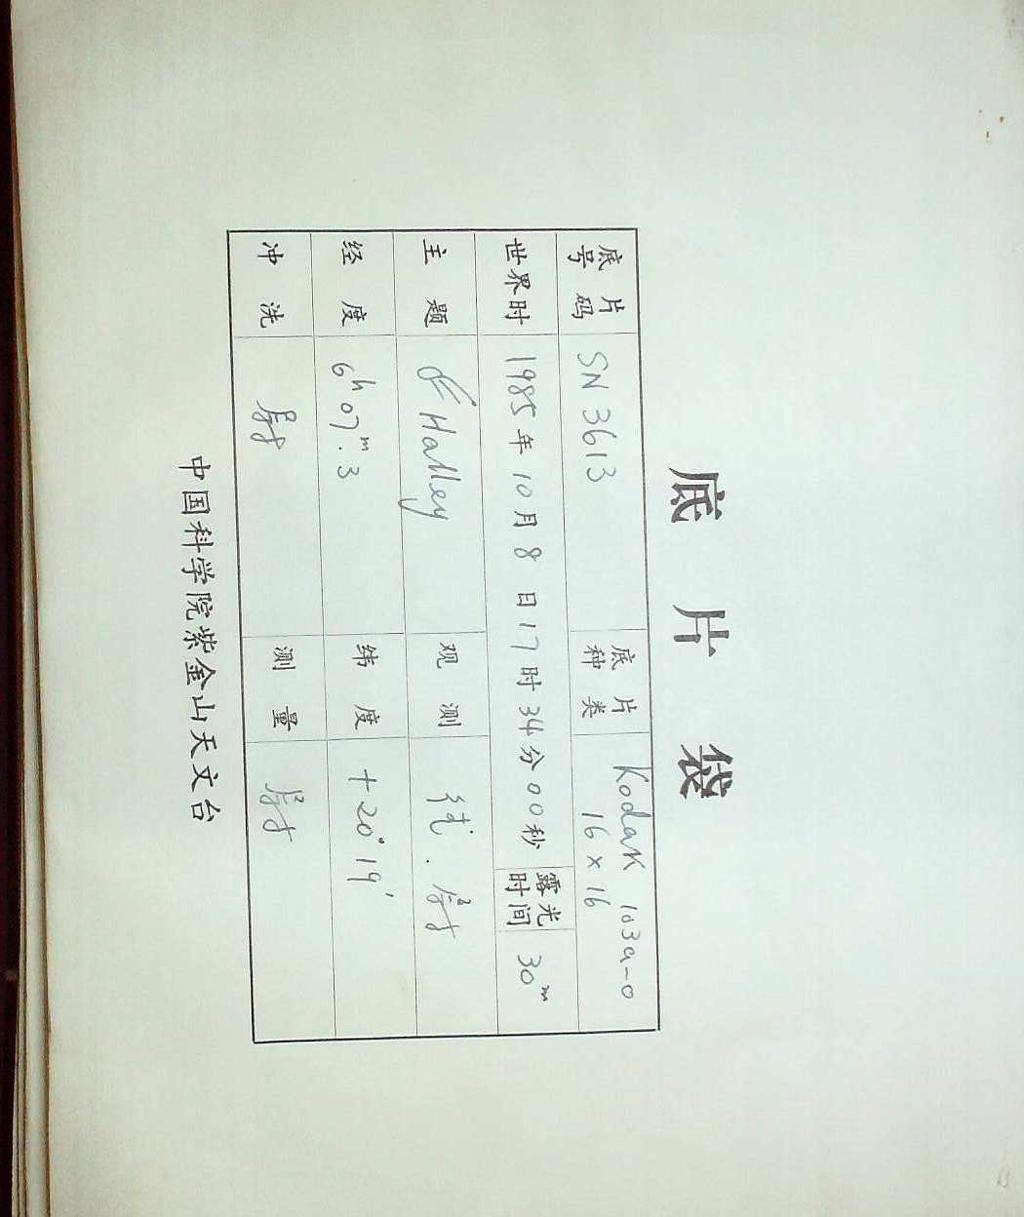 底片袋
底片号码 SN 3613 底片种类 Kodak 103a-0 16×16
世界时 1985年10月8日17时34分00秒 露光时间 30m
主题 Halley 观测
经度 6h07m.3 纬度 +20°19′
冲洗 测量
中国科学院紫金山天文台